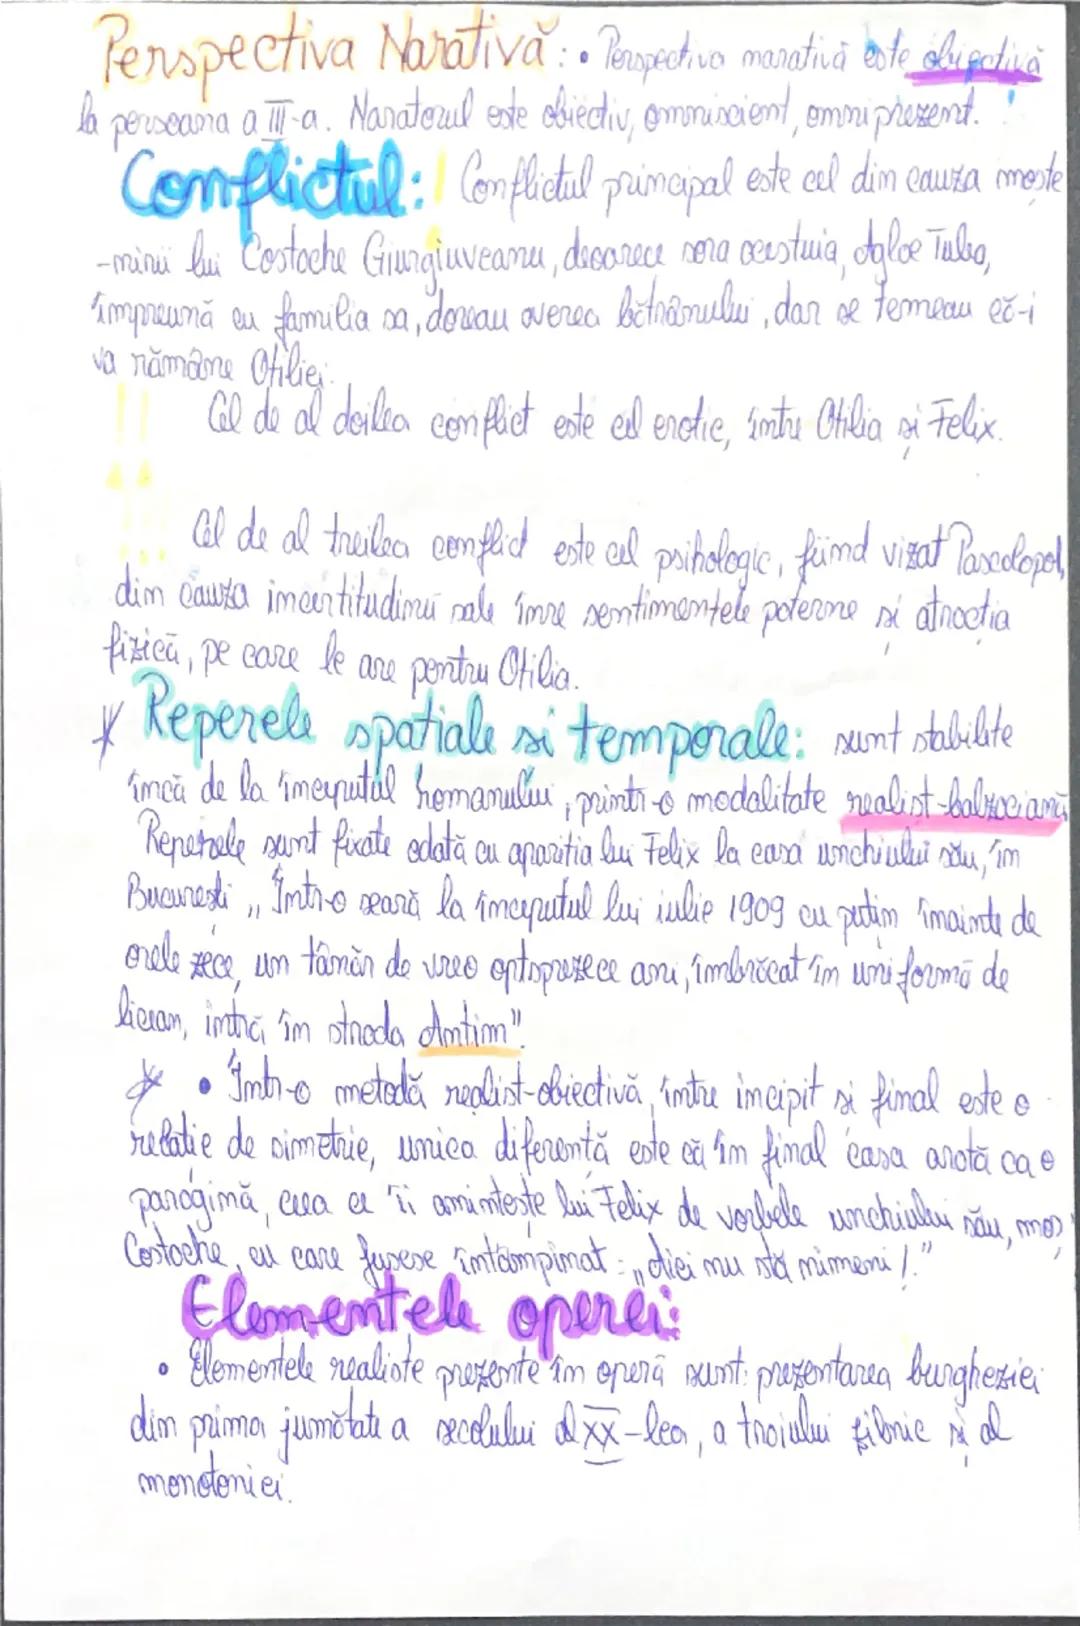 Perspectiva Narativă: • Perspectiva narativă este obiectivă
la persoana a III-a. Naratorul este obiectiv, omniscient, omniprezent. !
Conflictul: ! Conflictul principal este cel din cauza moște
-nirii lui Costache Giurgiuveanu, deoarece sora acestuia, Aglae Tulea,
împreună cu familia sa, doreau averea bătrânului, dar se temeau că-i
va rămâne Otiliei.
Cel de al doilea conflict este cel erotic, între Otilia și Felix.
Cel de al treilea conflict este cel psihologic, fiind vizat Pascalopol,
din cauza incertitudinii sale între sentimentele paterne și atracția
fizică, pe care le are pentru Otilia.
Reperele spatiale si temporale: sunt stabilite
încă de la începutul romanului, printr-o modalitate realist-balzaciană
Reperele sunt fixate odată cu apariția lui Felix la casa unchiului său, în
Bucuresti „Într-o seară la începutul lui iulie 1909 cu puțin înainte de
orele zece, un tânăr de vreo optsprezece ani, îmbrăcat în uniformă de
licean, intră în strada Antim".
• Într-o metodă realist-obiectivă, între incipit si final este o
relatie de simetrie, unica diferență este că în final casa arată ca o
paragină, ceea ce îi amintește lui Felix de vorbele unchiului său, moș
Costache, cu care fusese întâmpinat: „Aici nu stă nimeni!."
Elementele operei:
• Elementele realiste prezente în operă sunt: prezentarea burgheziei
din prima jumătate a secolului al XX-lea, a traiului zilnic și al
monotoniei.